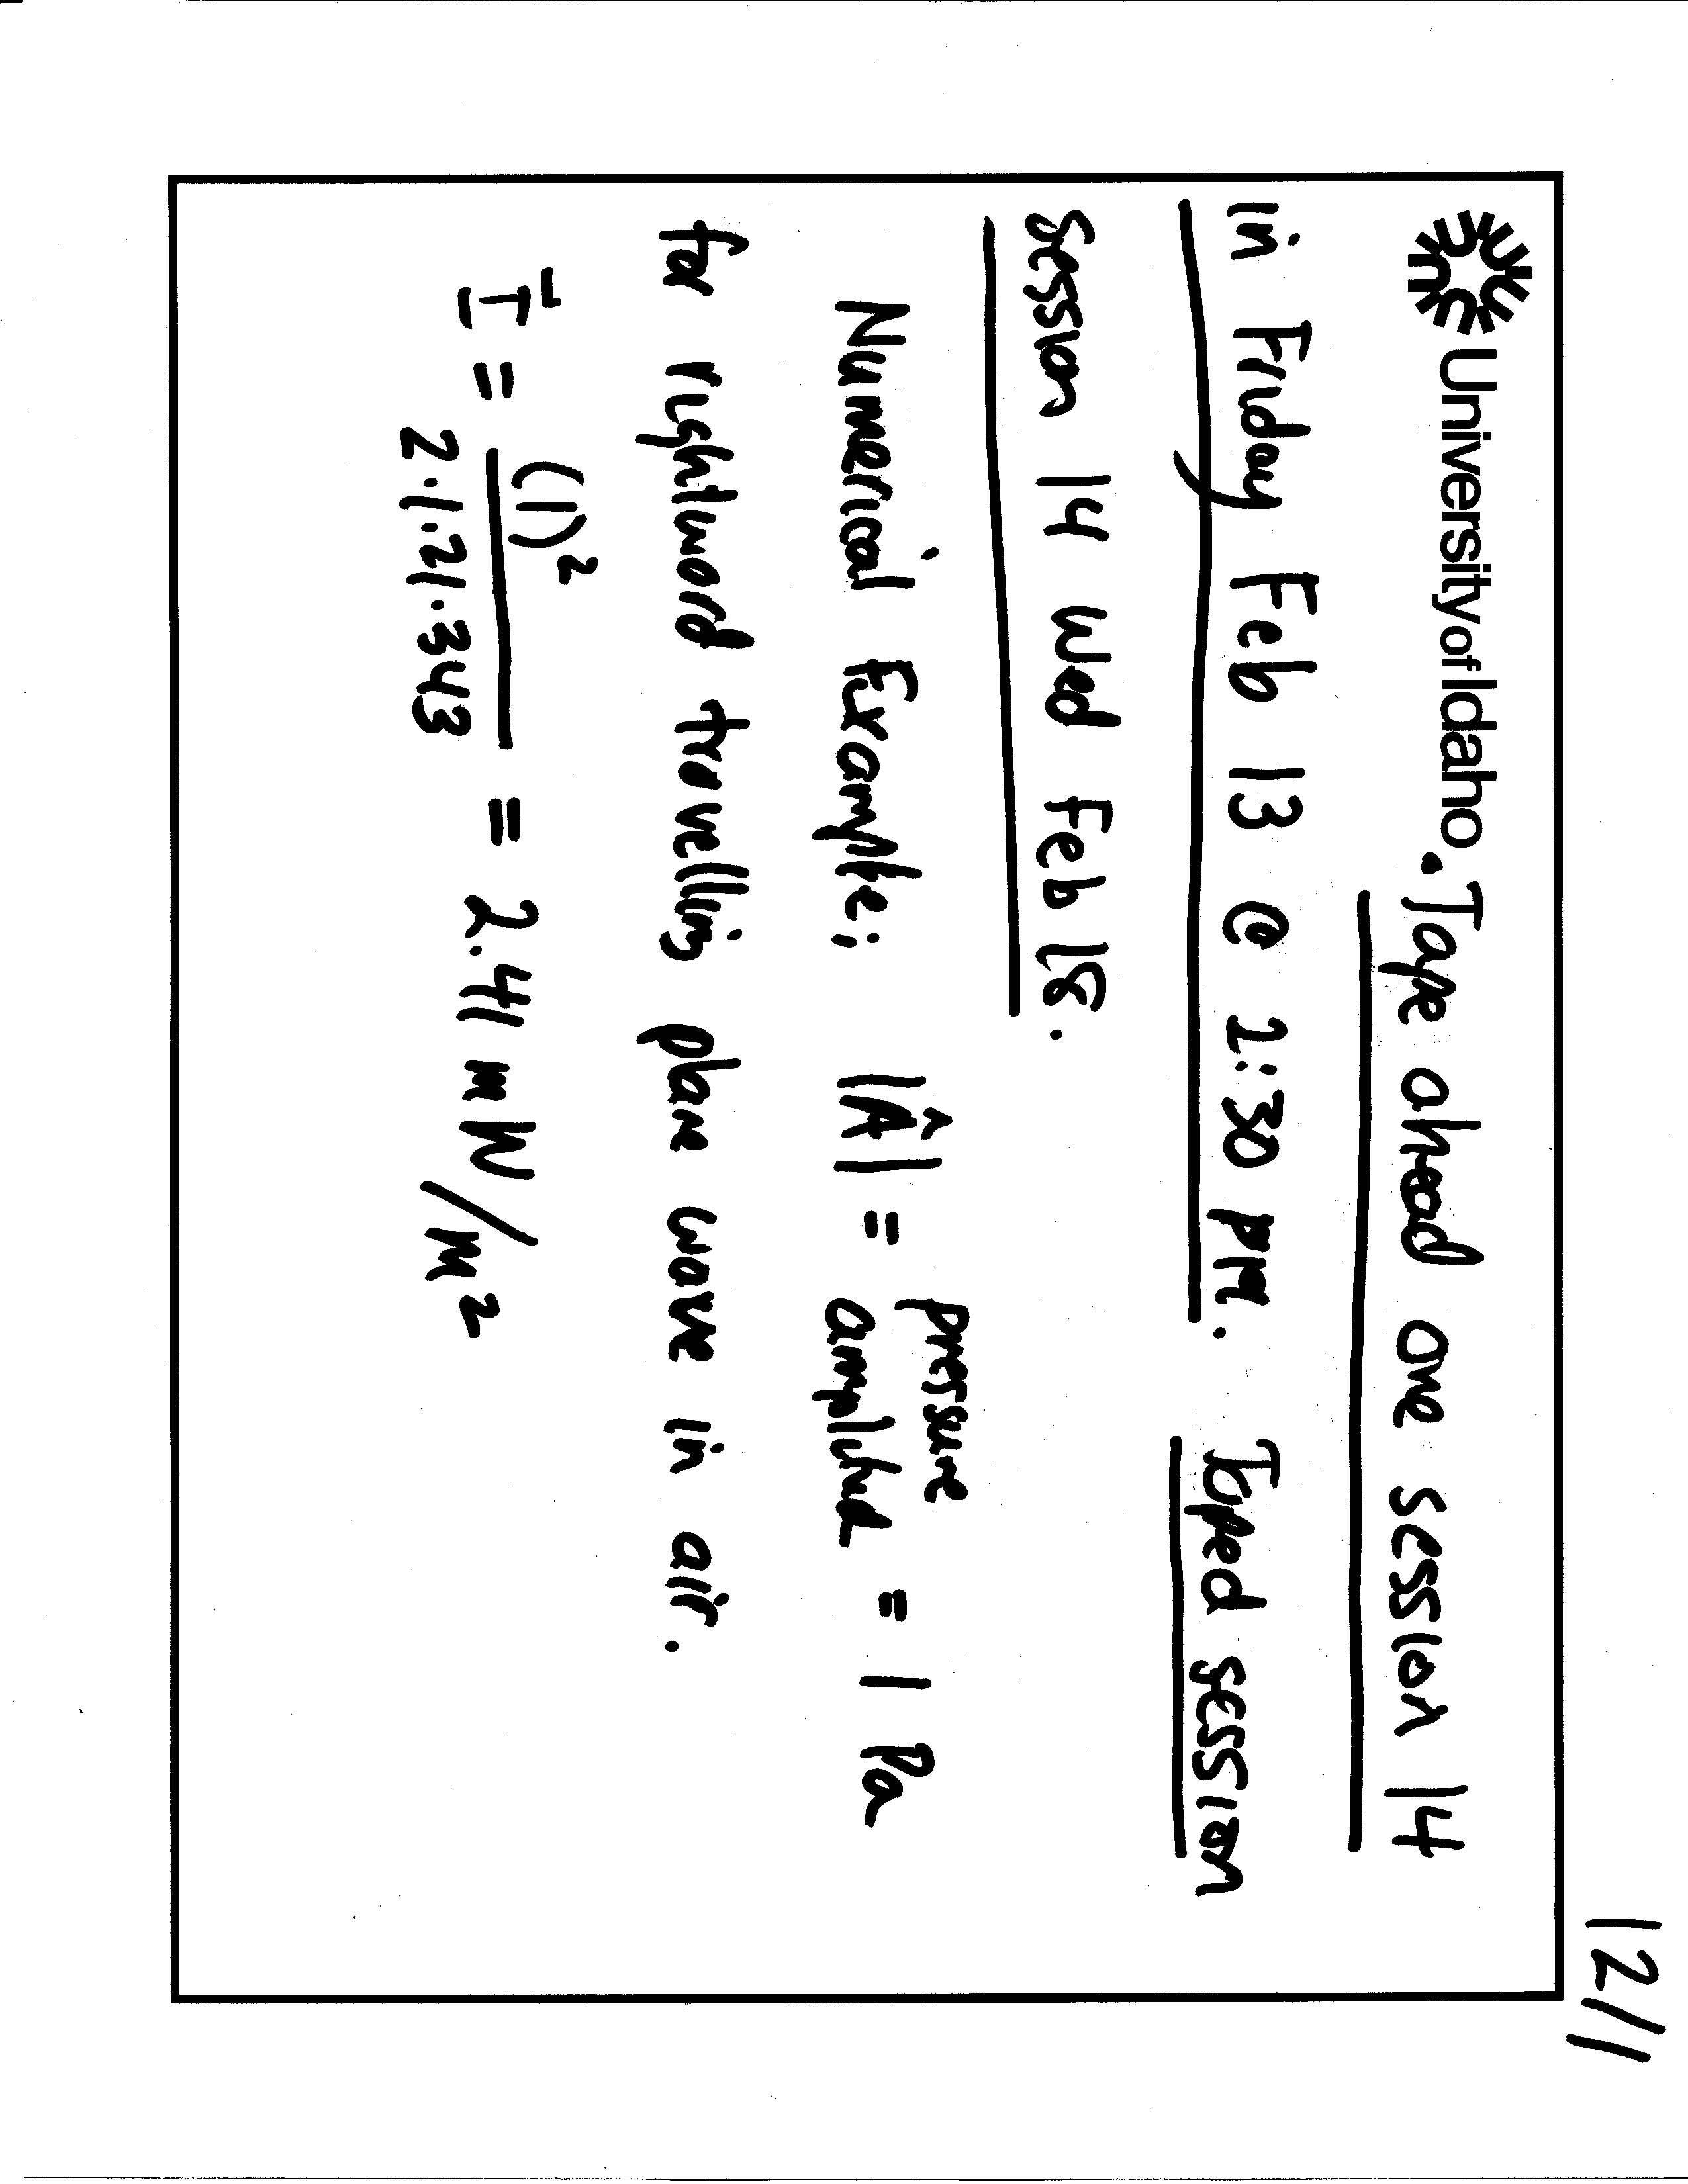 12/1
University of Idaho • Tape ahead one session 14
in Friday Feb 13 @ 2:30 PM. Taped session
session 14 Wed Feb 18.
Numerical Example: |Â| = pressure amplitud = 1 Pa
for rightward travelling plane wave in air.
Ī = (1)² / 2·1.21·343 = 2.41 mW/m²